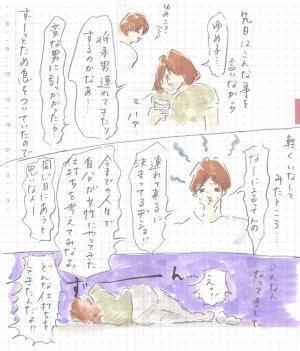 先日はこんな事を
言いながら
ゆめ子…
ゆめこ?
将来男連れてきたり
するのかなあ…
変な男に引っかかったら…
ハァ
ずーっとため息をついていたので
軽くいなして
みたところ…
なーに言ってんの
連れて来るに
決まってるデショ!!
今までの人生で
自分が女性にやってきた
仕打ちを考えてみなよ。
同じ目にあうと
思いなよー
こんなん
なってました
ずーーん…
えっ!?
どんな仕打ちを
してきたんだよ!!